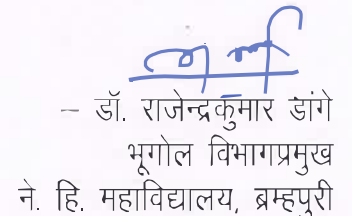 – डॉ. राजेन्द्रकुमार डांगे
भूगोल विभागप्रमुख
ने. हि. महाविद्यालय, ब्रम्हपुरी